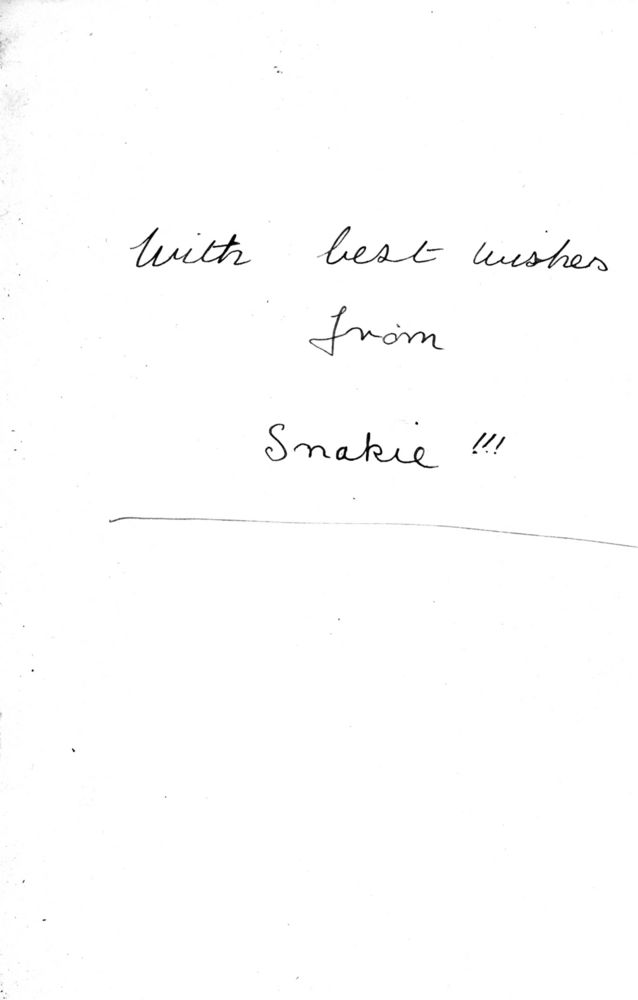 With best wishes
from
Snakie !!!